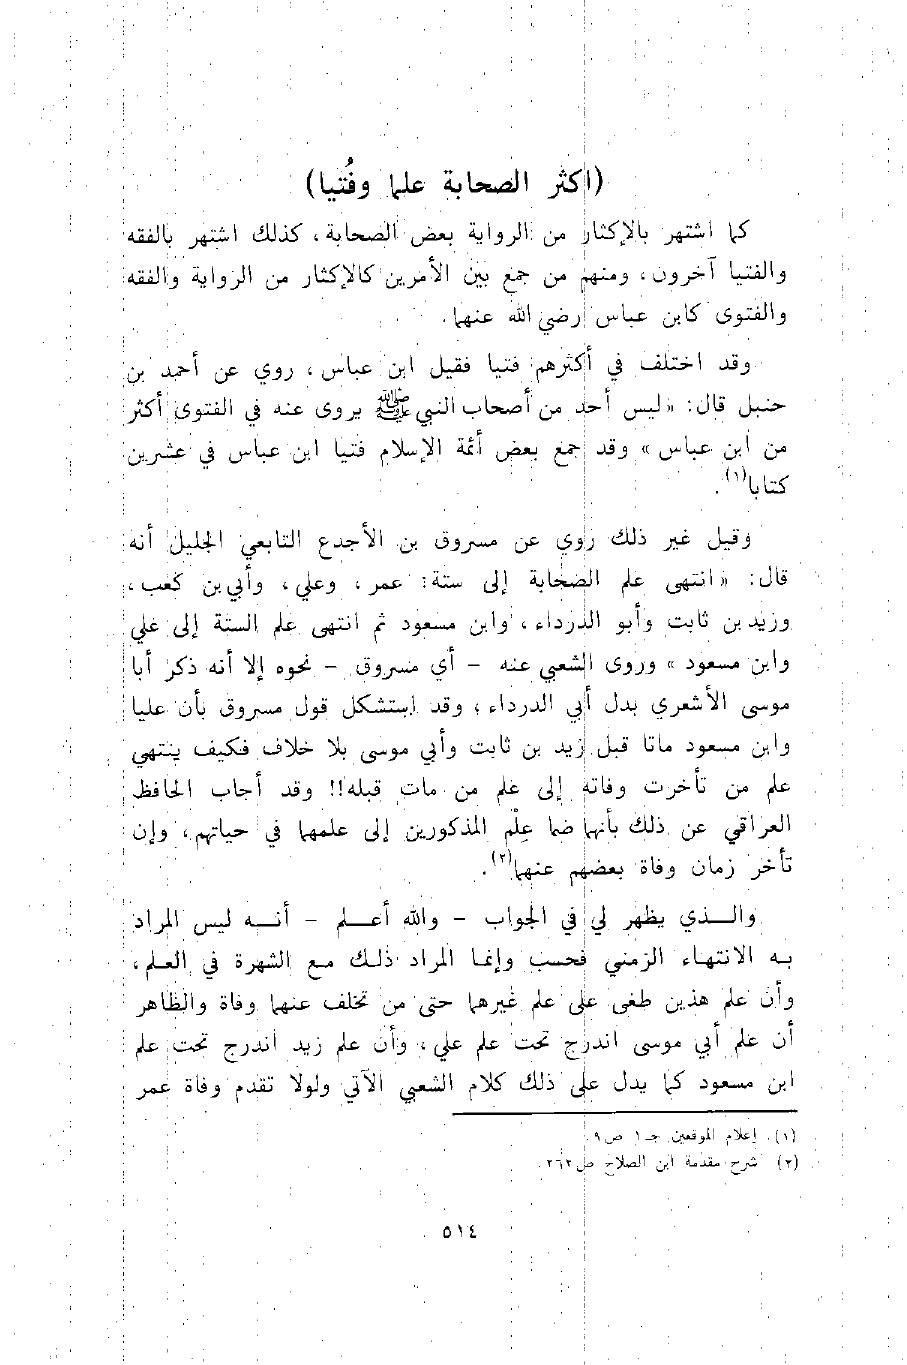 (أكثر الصحابة علما وفُتيا)
كما اشتهر بالإكثار من الرواية بعض الصحابة، كذلك اشتهر بالفقه
والفتيا آخرون، ومنهم من جمع بين الأمرين كالإكثار من الرواية والفقه
والفتوى كابن عباس رضي الله عنهما.
وقد اختلف في أكثرهم فتيا فقيل ابن عباس، روي عن أحمد بن
حنبل قال: «ليس أحد من أصحاب النبي ﷺ يروى عنه في الفتوى أكثر
من ابن عباس» وقد جمع بعض أئمة الإسلام فتيا ابن عباس في عشرين
كتابا(١).
وقيل غير ذلك روي عن مسروق بن الأجدع التابعي الجليل أنه
قال: «انتهى علم الصحابة إلى ستة: عمر، وعلي، وأبي بن كعب،
وزيد بن ثابت وأبو الدرداء، وابن مسعود ثم انتهى علم الستة إلى علي
وابن مسعود» وروى الشعبي عنه - أي مسروق - نحوه إلا أنه ذكر أبا
موسى الأشعري بدل أبي الدرداء، وقد استشكل قول مسروق بأن عليا
وابن مسعود ماتا قبل زيد بن ثابت وأبي موسى بلا خلاف فكيف ينتهي
علم من تأخرت وفاته إلى علم من مات قبله!! وقد أجاب الحافظ
العراقي عن ذلك بأنهما ضما عِلْم المذكورين إلى علمهما في حياتهم، وإن
تأخر زمان وفاة بعضهم عنهما(٢).
والـذي يظهر لي في الجواب - والله أعـلم - أنـه ليس المراد
به الانتهاء الزمني فحسب وإنما المراد ذلك مع الشهرة في العلم،
وأن علم هذين طغى على علم غيرهما حتى من تخلف عنهما وفاة والظاهر
أن علم أبي موسى اندرج تحت علم علي، وأن علم زيد اندرج تحت علم
ابن مسعود كما يدل على ذلك كلام الشعبي الآتي ولولا تقدم وفاة عمر
(١) إعلام الموقعين جـ١ ص٩.
(٢) شرح مقدمة ابن الصلاح ص٢٦٢.
٥١٤